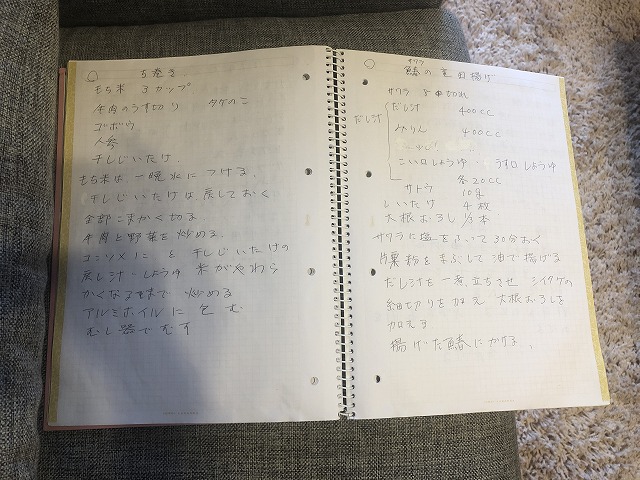 ち巻き
もち米 3カップ
牛肉のうす切り タケのこ
ゴボウ
人参
干しじいたけ
もち米は一晩水につける
干しじいたけは戻しておく
全部こまかく切る
牛肉と野菜を炒める
と干しじいたけの
戻し汁・しょうゆ 米がやわら
かくなるまで 炒める
アルミホイルに包む
むし器でむす
サワラ
鰆の 揚げ
サワラ 切れ
だし汁
だし汁 400cc
みりん 400cc
こい口しょうゆ・うす口しょうゆ
各20cc
サトウ 10g
しいたけ 4枚
大根おろし 1/3本
サワラに塩をふって30分おく
片栗粉をまぶして油で揚げる
だし汁を一煮立ちさせ シイタケの
細切りを加え 大根おろしを
加える
揚げた鰆にかける。